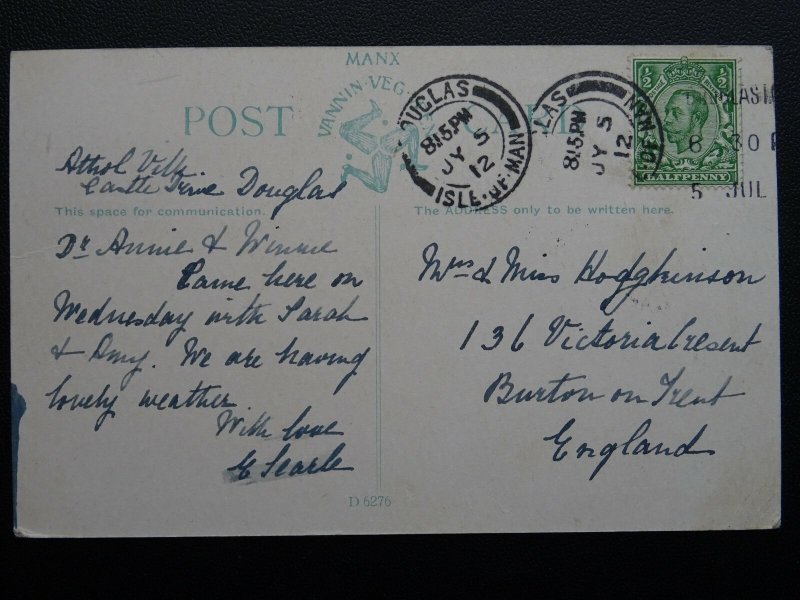 MANX
VANNIN·VEG
POST CARD
DOUGLAS
8.15PM
JY 5
12
ISLE·OF·MAN
LAS
8.15PM
JY 5
12
OF·MAN
½ ½
HALFPENNY
DOUGLAS
6 30 P
5 JUL
Athol Vill
Castle Drive Douglas
This space for communication.
Dr Annie & Winnie
Came here on
Wednesday with Sarah
& Amy. We are having
lovely weather
With love
E Searle
The ADDRESS only to be written here.
Mrs & Miss Hodgkinson
136 Victoria Cresent
Burton on Trent
England
D 5276